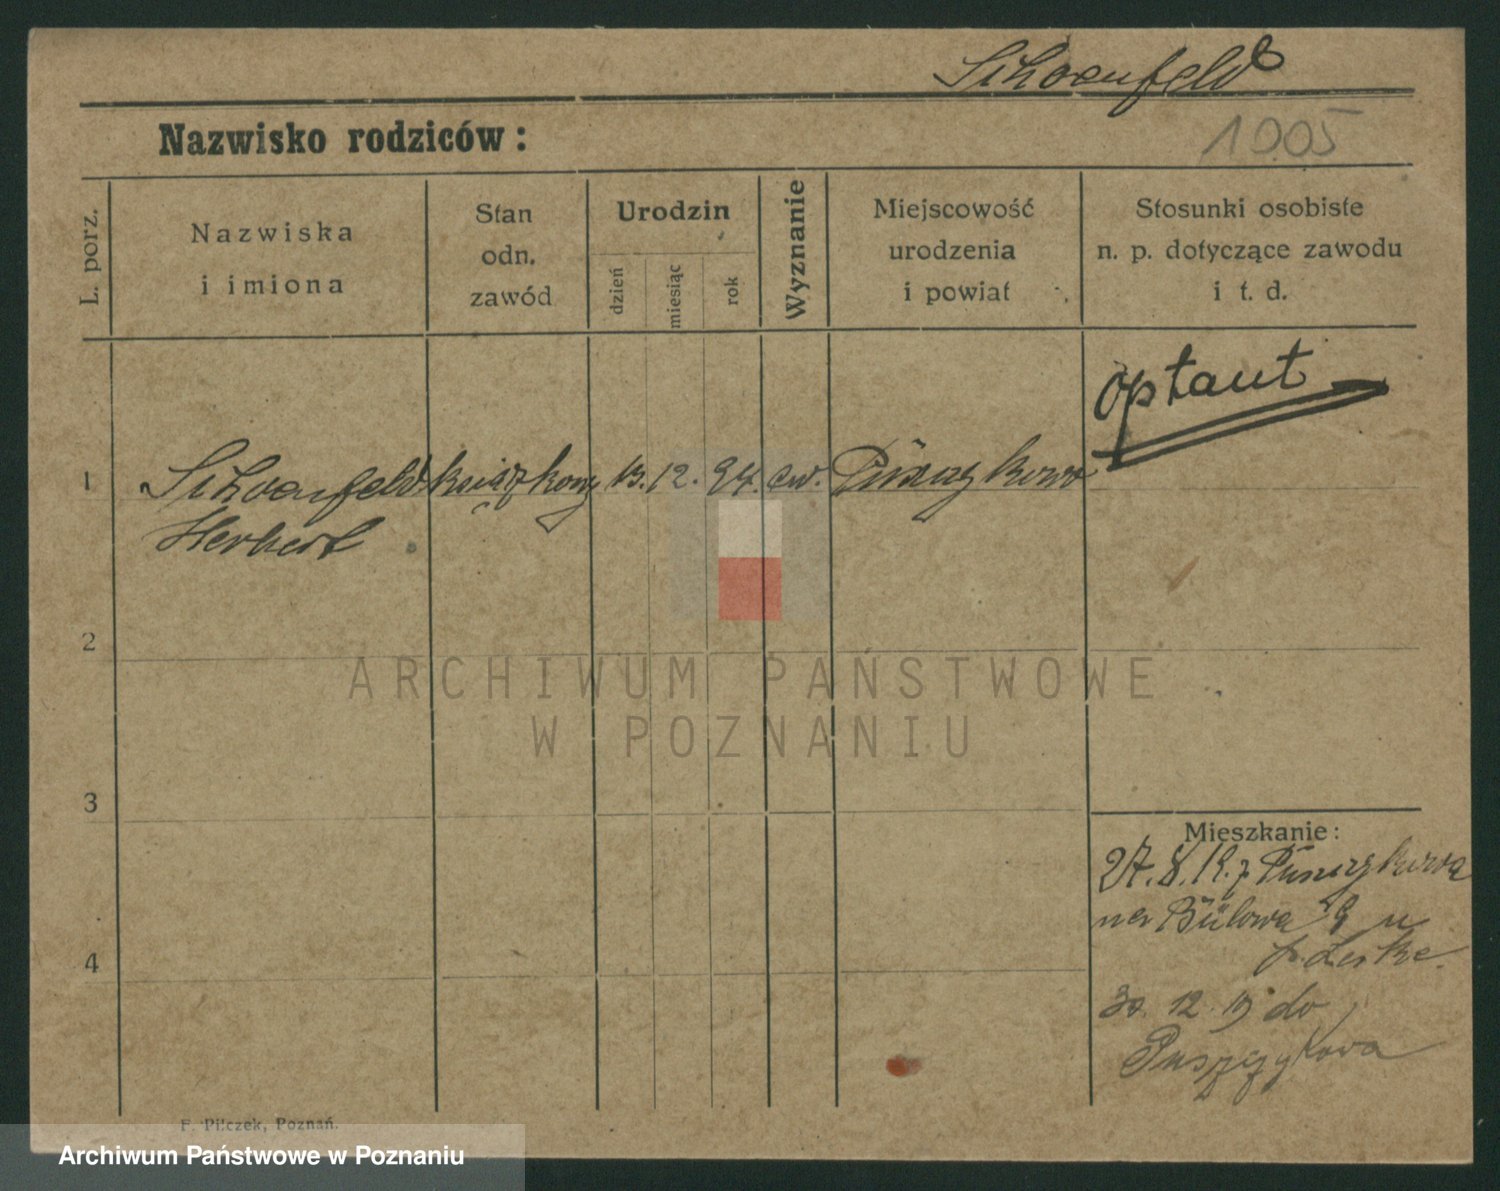 Schoenfeld
Nazwisko rodziców:
1905
L. porz.
Nazwiska
i imiona
Stan
odn.
zawód
Urodzin
dzień
miesiąc
rok
Wyznanie
Miejscowość
urodzenia
i powiat
Stosunki osobiste
n. p. dotyczące zawodu
i t. d.
optant
1
Schoenfeld książkowy 13. 12. 94. ew. Puszczykowo
Herbert
2
ARCHIWUM PAŃSTWOWE
W POZNANIU
3
Mieszkanie:
27. 8. 19. z Puszczykowa
na Bülowa 9 u
Leske.
30. 12. 19 do
Puszczykowa
4
F. Pilczek, Poznań.
Archiwum Państwowe w Poznaniu